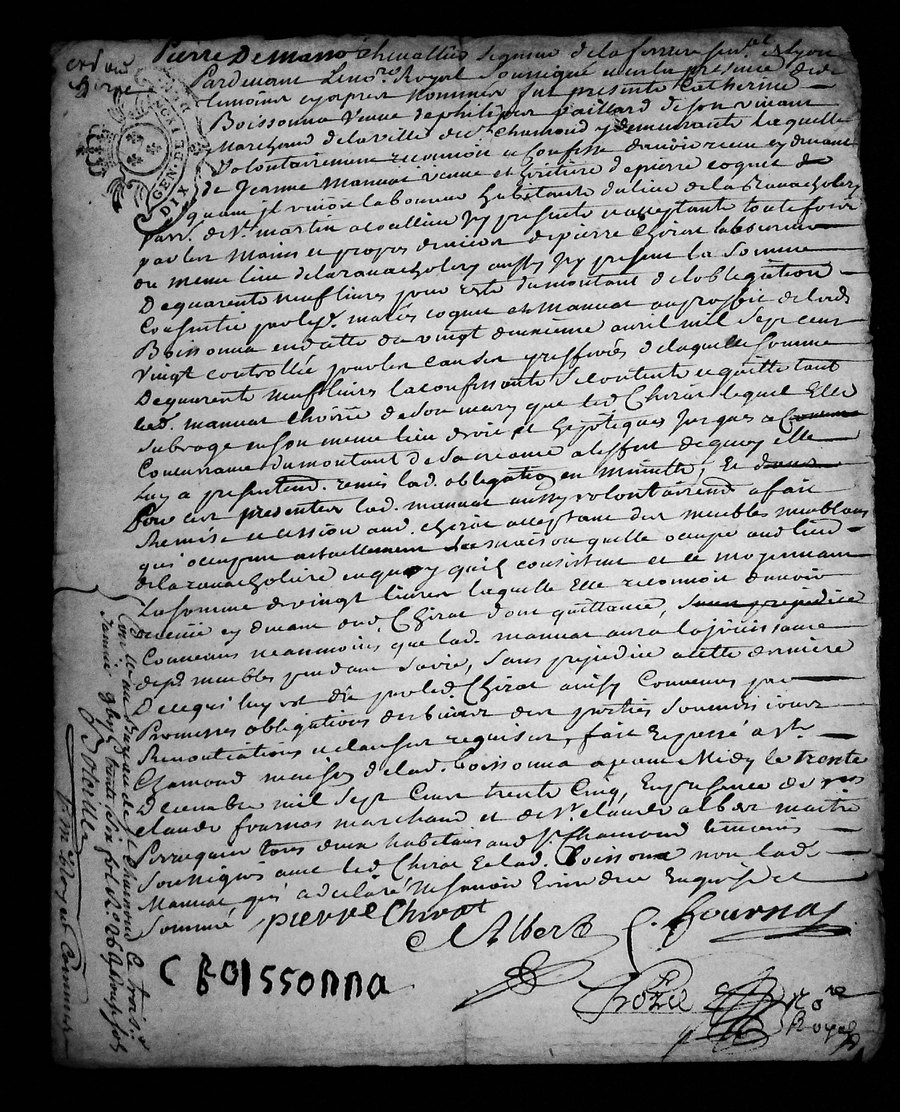 Pierre Demans Chevallier Seigneur de la
Pardevant Le no.re Royal Soussigné et en la presence des
temoins cy apres nommes fut presente Catherine
Boissonna veuve de philipe paillard de son vivant
Marchand de la ville de St. Chamond y demeurante laquelle
Volontairement reconnoit et Confesse avoir receu cy devant
de Jeanne Manuat veuve et heritiere de pierre coquet
quand il vivoit laboureur habitante du lieu de la Ravacholery
parr. de St. martin acoallieu icy presente et acceptante toute fois
par les mains et propres deniers de pierre Chirat laboureur
du meme lieu de la ravacholery aussy icy present la Somme
De quarente neuf livres pour reste du montant de lobligation
Consentie par les d. maries coquet et manuat au proffit de lad.
Boissonna en datte du vingt deuxieme avril mil sept cens
vingt controllée pour les causes y refferées de laquelle somme
De quarente neuf livres la confessante se contente et quitte tant
lad. manuat heritiere de son mary que led. Chirat lequel Elle
subroge en son meme lieu droit et hypoteques jusques a
Concurrance du montant de sa creance a leffet de quoy elle
luy a presentem.t remis lad. obligation en minutte, Et
Pour ces presentes lad. manuat aussy volontairem.t a fait
Remise et cession aud. chirat acceptant des meubles meublans
qui occupent actuellement la maison quelle occupe aud. lieu
de la ravacholiere en quoy quils consistent et ce moyennant
La somme de vingt livres laquelle Elle reconnoit avoir
receüe cy devant dud. Chirat dont quittance, sans prejudice
Convenus neanmoins que lad. manuat aura la joüissance
desd. meubles pendant sa vie, sans prejudice a cette derniere
De ce qui luy est dû par led. Chirat ainsy Convenus par
Promesses obligations de biens des parties soumissions
Renontiations et clauses requises, fait et passé a St.
Chamond maison de lad. Boissonna apres Midy le trente
Decembre mil sept Cens trente Cinq, En presence de sieurs
claude fournas marchand et de Sr. claude alber maitre
Perruquier tous deux habitans aud. St. Chamond temoins
Soussignés avec led. Chirat et lad. Boissonna non lad.
Manuat qui a declaré ne sçavoir Ecrire de ce Enquise et
Sommée
pierre Chirat
Albert
C. fournas
C BOISSONNA
no.re
Royal
GEN. DIX
Con.lle au Bureau de St Chamond le troisie
Janvier 1736 trente six